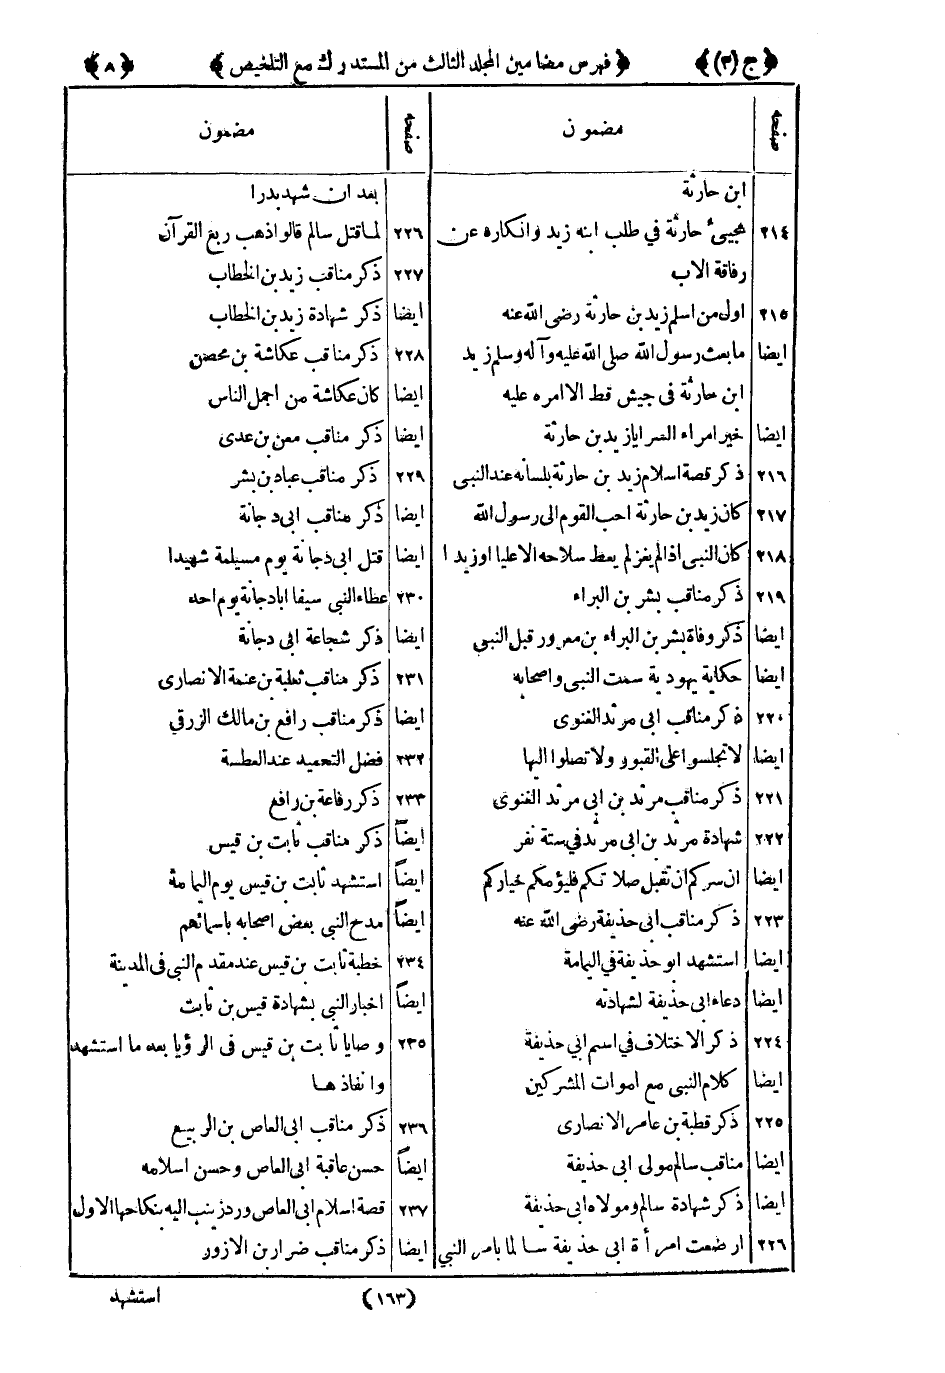 ﴿ ج (٣) ﴾ ﴿ فهرس مضامين المجلد الثالث من المستدرك مع التلخيص ﴾ ﴿ ٨ ﴾
صفحه مضمون
ابن حارثة
٢١٤ مجيئ حارثة في طلب ابنه زيد وانكاره عن
رفاقة الاب
٢١٥ اول من اسلم زيد بن حارثة رضى الله عنه
ايضا ما بعث رسول الله صلى الله عليه وآله وسلم زيد
ابن حارثة فى جيش قط الا امره عليه
ايضا خير امراء السرايا زيد بن حارثة
٢١٦ ذكر قصة اسلام زيد بن حارثة بلسانه عند النبى
٢١٧ كان زيد بن حارثة احب القوم الى رسول الله
٢١٨ كان النبى اذا لم يغز لم يعط سلاحه الا عليا او زيدا
٢١٩ ذكر مناقب بشر بن البراء
ايضا ذكر وفاة بشر بن البراء بن معرور قبل النبي
ايضا حكاية يهودية سمت النبى واصحابه
٢٢٠ ذكر مناقب ابى مرثد الغنوى
ايضا لا تجلسوا على القبور ولا تصلوا اليها
٢٢١ ذكر مناقب مرثد بن ابى مرثد الغنوى
٢٢٢ شهادة مرثد بن ابى مرثد في ستة نفر
ايضا ان سركم ان تقبل صلاتكم فليؤمكم خياركم
٢٢٣ ذكر مناقب ابى حذيفة رضى الله عنه
ايضا استشهد ابو حذيفة في اليمامة
ايضا دعاء ابى حذيفة لشهادته
٢٢٤ ذكر الاختلاف في اسم ابي حذيفة
ايضا كلام النبى مع اموات المشركين
٢٢٥ ذكر قطبة بن عامر الانصارى
ايضا مناقب سالم مولى ابى حذيفة
ايضا ذكر شهادة سالم ومولاه ابى حذيفة
٢٢٦ ارضعت امرأة ابى حذيفة سالما بامر النبي
صفحه مضمون
بعد ان شهد بدرا
٢٢٦ لما قتل سالم قالوا ذهب ربع القرآن
٢٢٧ ذكر مناقب زيد بن الخطاب
ايضا ذكر شهادة زيد بن الخطاب
٢٢٨ ذكر مناقب عكاشة بن محصن
ايضا كان عكاشة من اجمل الناس
ايضا ذكر مناقب معن بن عدى
٢٢٩ ذكر مناقب عباد بن بشر
ايضا ذكر مناقب ابى دجانة
ايضا قتل ابى دجانة يوم مسيلمة شهيدا
٢٣٠ عطاء النبي سيفا ابا دجانة يوم احد
ايضا ذكر شجاعة ابى دجانة
٢٣١ ذكر مناقب ثعلبة بن عنمة الانصارى
ايضا ذكر مناقب رافع بن مالك الزرقي
٢٣٢ فضل التحميد عند العطسة
٢٣٣ ذكر رفاعة بن رافع
ايضاً ذكر مناقب ثابت بن قيس
ايضاً استشهد ثابت بن قيس يوم اليمامة
ايضاً مدح النبي بعض اصحابه باسمائهم
٢٣٤ خطبة ثابت بن قيس عند مقدم النبى فى المدينة
ايضاً اخبار النبى بشهادة قيس بن ثابت
٢٣٥ وصايا ثابت بن قيس فى الرؤيا بعد ما استشهد
وانفاذها
٢٣٦ ذكر مناقب ابى العاص بن الربيع
ايضاً حسن عاقبة ابى العاص وحسن اسلامه
٢٣٧ قصة اسلام ابى العاص ورد زينب اليه بنكاحها الاول
ايضا ذكر مناقب ضرار بن الازور
(١٦٣) استشهد